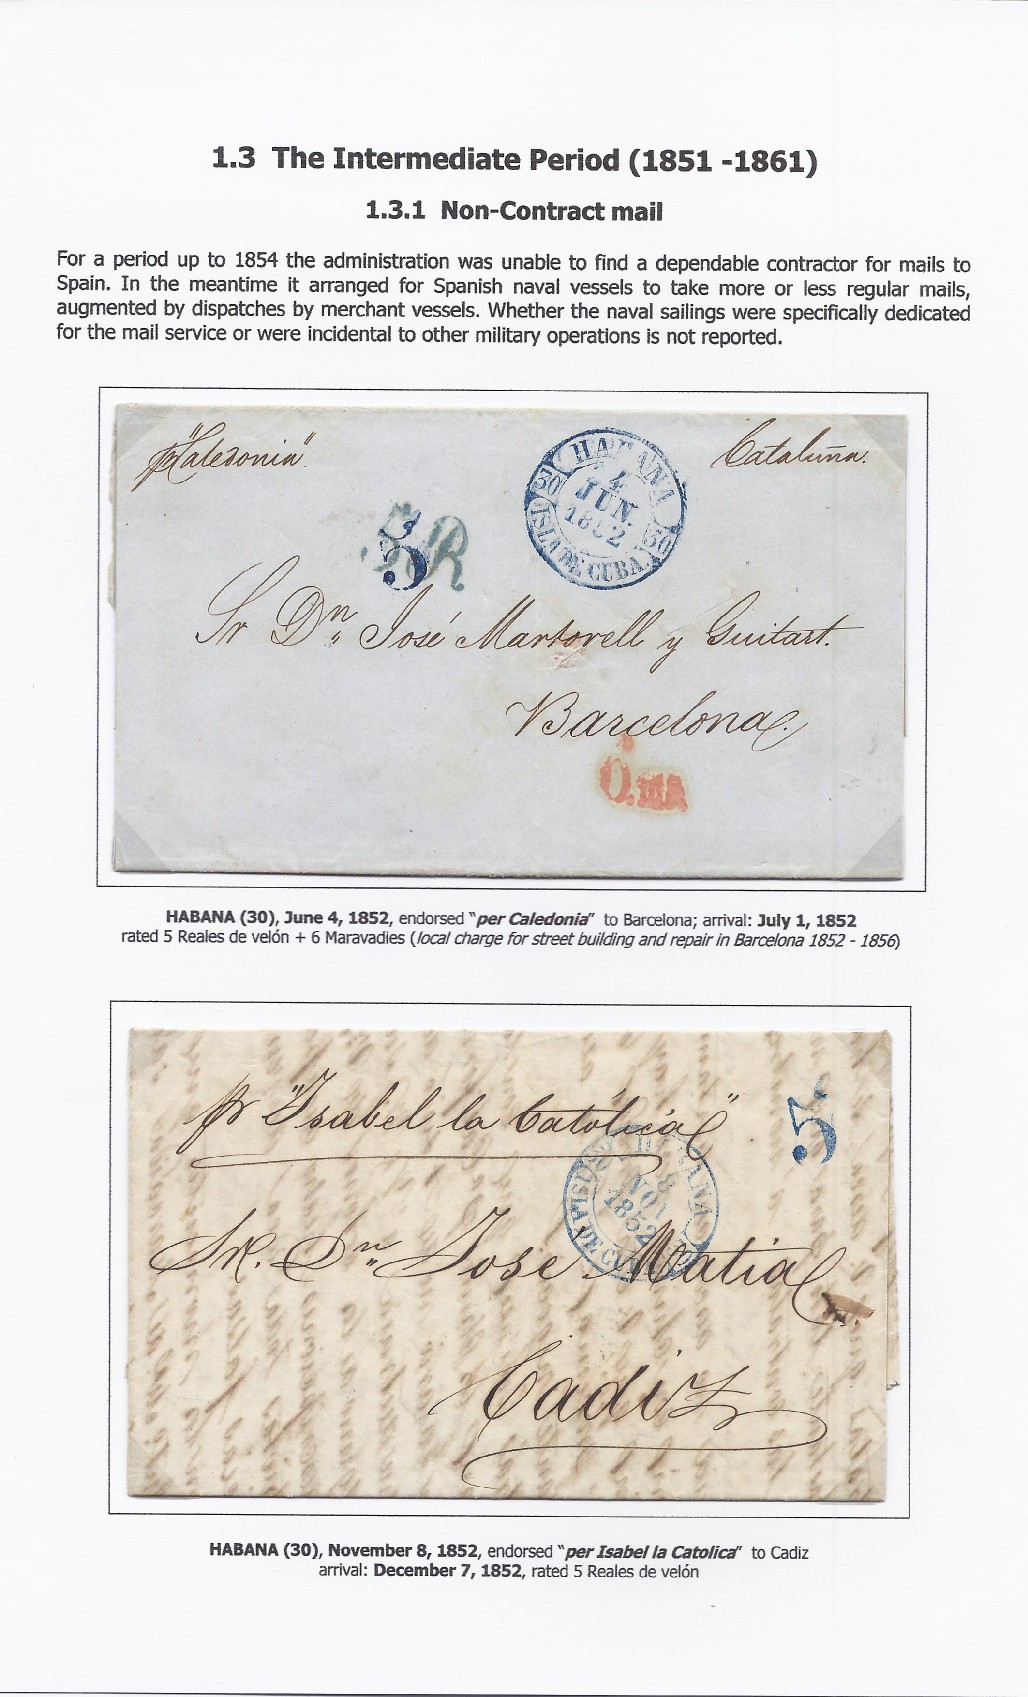 1.3 The Intermediate Period (1851 -1861)
1.3.1 Non-Contract mail
For a period up to 1854 the administration was unable to find a dependable contractor for mails to
Spain. In the meantime it arranged for Spanish naval vessels to take more or less regular mails,
augmented by dispatches by merchant vessels. Whether the naval sailings were specifically dedicated
for the mail service or were incidental to other military operations is not reported.
pr "Caledonia"
Cataluña.
HABANA
4
JUN.
1852
30
30
ISLA DE CUBA
5R
5
Sr Dn José Martorell y Guitart.
Barcelona.
HABANA (30), June 4, 1852, endorsed "per Caledonia" to Barcelona; arrival: July 1, 1852
rated 5 Reales de velón + 6 Maravadies (local charge for street building and repair in Barcelona 1852 - 1856)
pr "Isabel la Católica"
5
HABANA
8
NOV
1852
ISLA DE CUBA
Sr. Dn Jose Matia
Cadiz
HABANA (30), November 8, 1852, endorsed "per Isabel la Catolica" to Cadiz
arrival: December 7, 1852, rated 5 Reales de velón